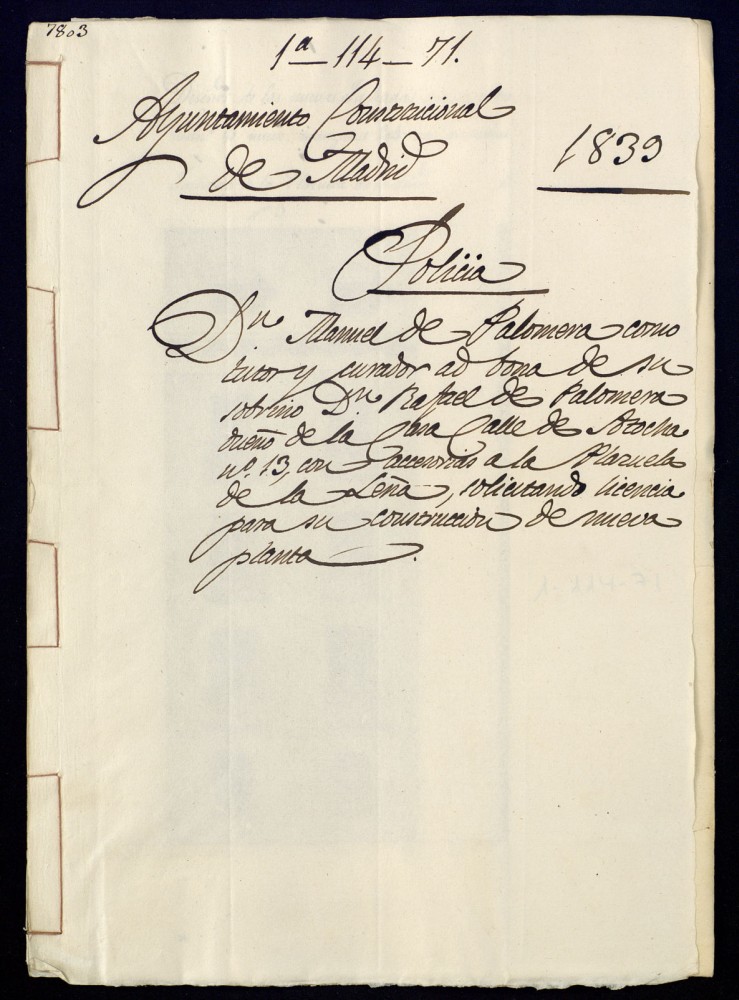 7803
1ª-114-71.
Ayuntamiento Constitucional
de Madrid
1839
Policia
Dn. Manuel de Palomera como
tutor y curador ad bona de su
sobrino Dn Rafael de Palomera
dueño de la Casa Calle de Atocha
nº. 13, con accesorias a la Plazuela
de la Leña, solicitando licencia
para su construccion de nueva
planta.